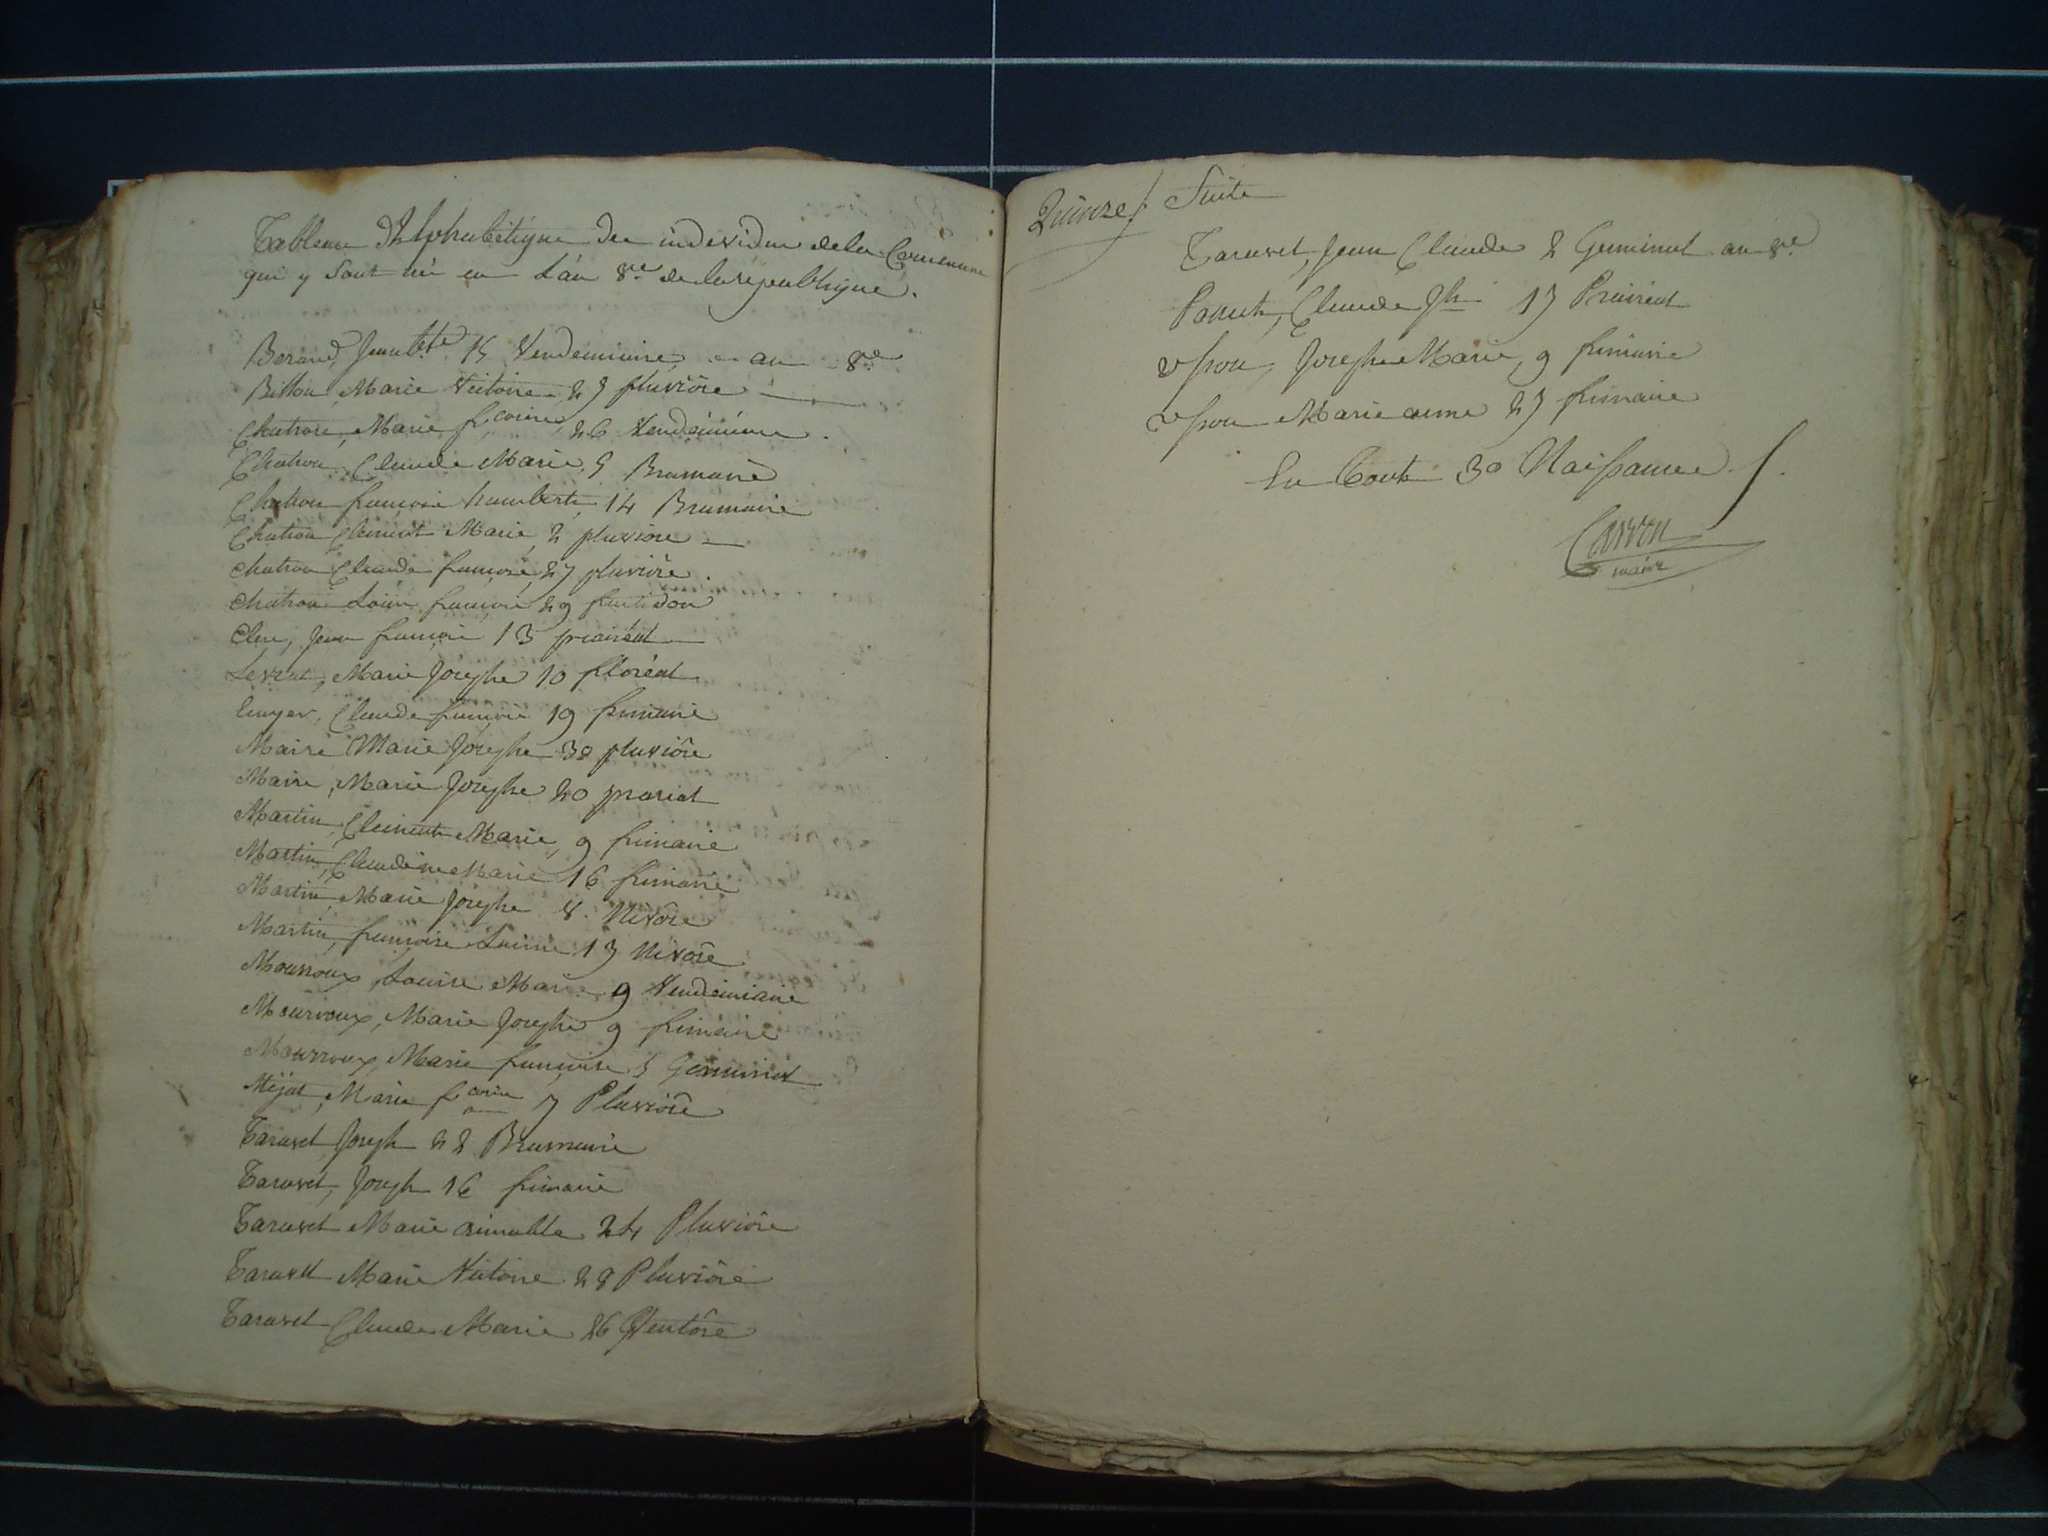 Tableau Alphabétique des individus de la Commune
qui y sont né en L'an 8.me de la république.
Beraud, Jean Bte 15 Vendemiaire an 8e
Billou, Marie Victoire 27 pluviôse
Chatron, Marie fcoise 26 Vendémiaire.
Chatron Claude Marie 5 Brumaire
Chatron françois humbert 14 Brumaire
Chatron Clement Marie, 2 pluviose
Chatron Claude françois 27 pluviôse.
Chatron Louis françois 29
Clerc, Jean françois 13 prairéal
Levrat, Marie Josephe 10 floréal
Claude françois 19 frimaire
Maire Marie Josephe 30 pluviôse
Maire, Marie Josephe 20 prarial
Martin, Clement Marie, 9 frimaire
Martin, Claudine Marie 16 frimaire
Martin Marie Josephe 8. Nivôse
Martin, françoise Louise 13 Nivôse
Mourroux, Louise Marie 9 Vendémiaire
Mourroux, Marie Josephe 9 frimaire
Mourroux, Marie françoise 5 Germinal
Mijat, Marie fcoise 7 Pluviôse
Taravet Joseph 22 Brumaire
Taravet, Joseph 16 frimaire
Taravet Marie aimable 24 Pluviôse
Taravet Marie Victoire 28 Pluviôse
Taravet Claude Marie 26 Ventôse
Quinze Suite
Taravet, Jean Claude 2 Germinal an 8e
Claude Jh 17 Prairéal
Josephe Marie, 9 frimaire
Marie anne 27 frimaire
En Tout 30 Naissance
maire